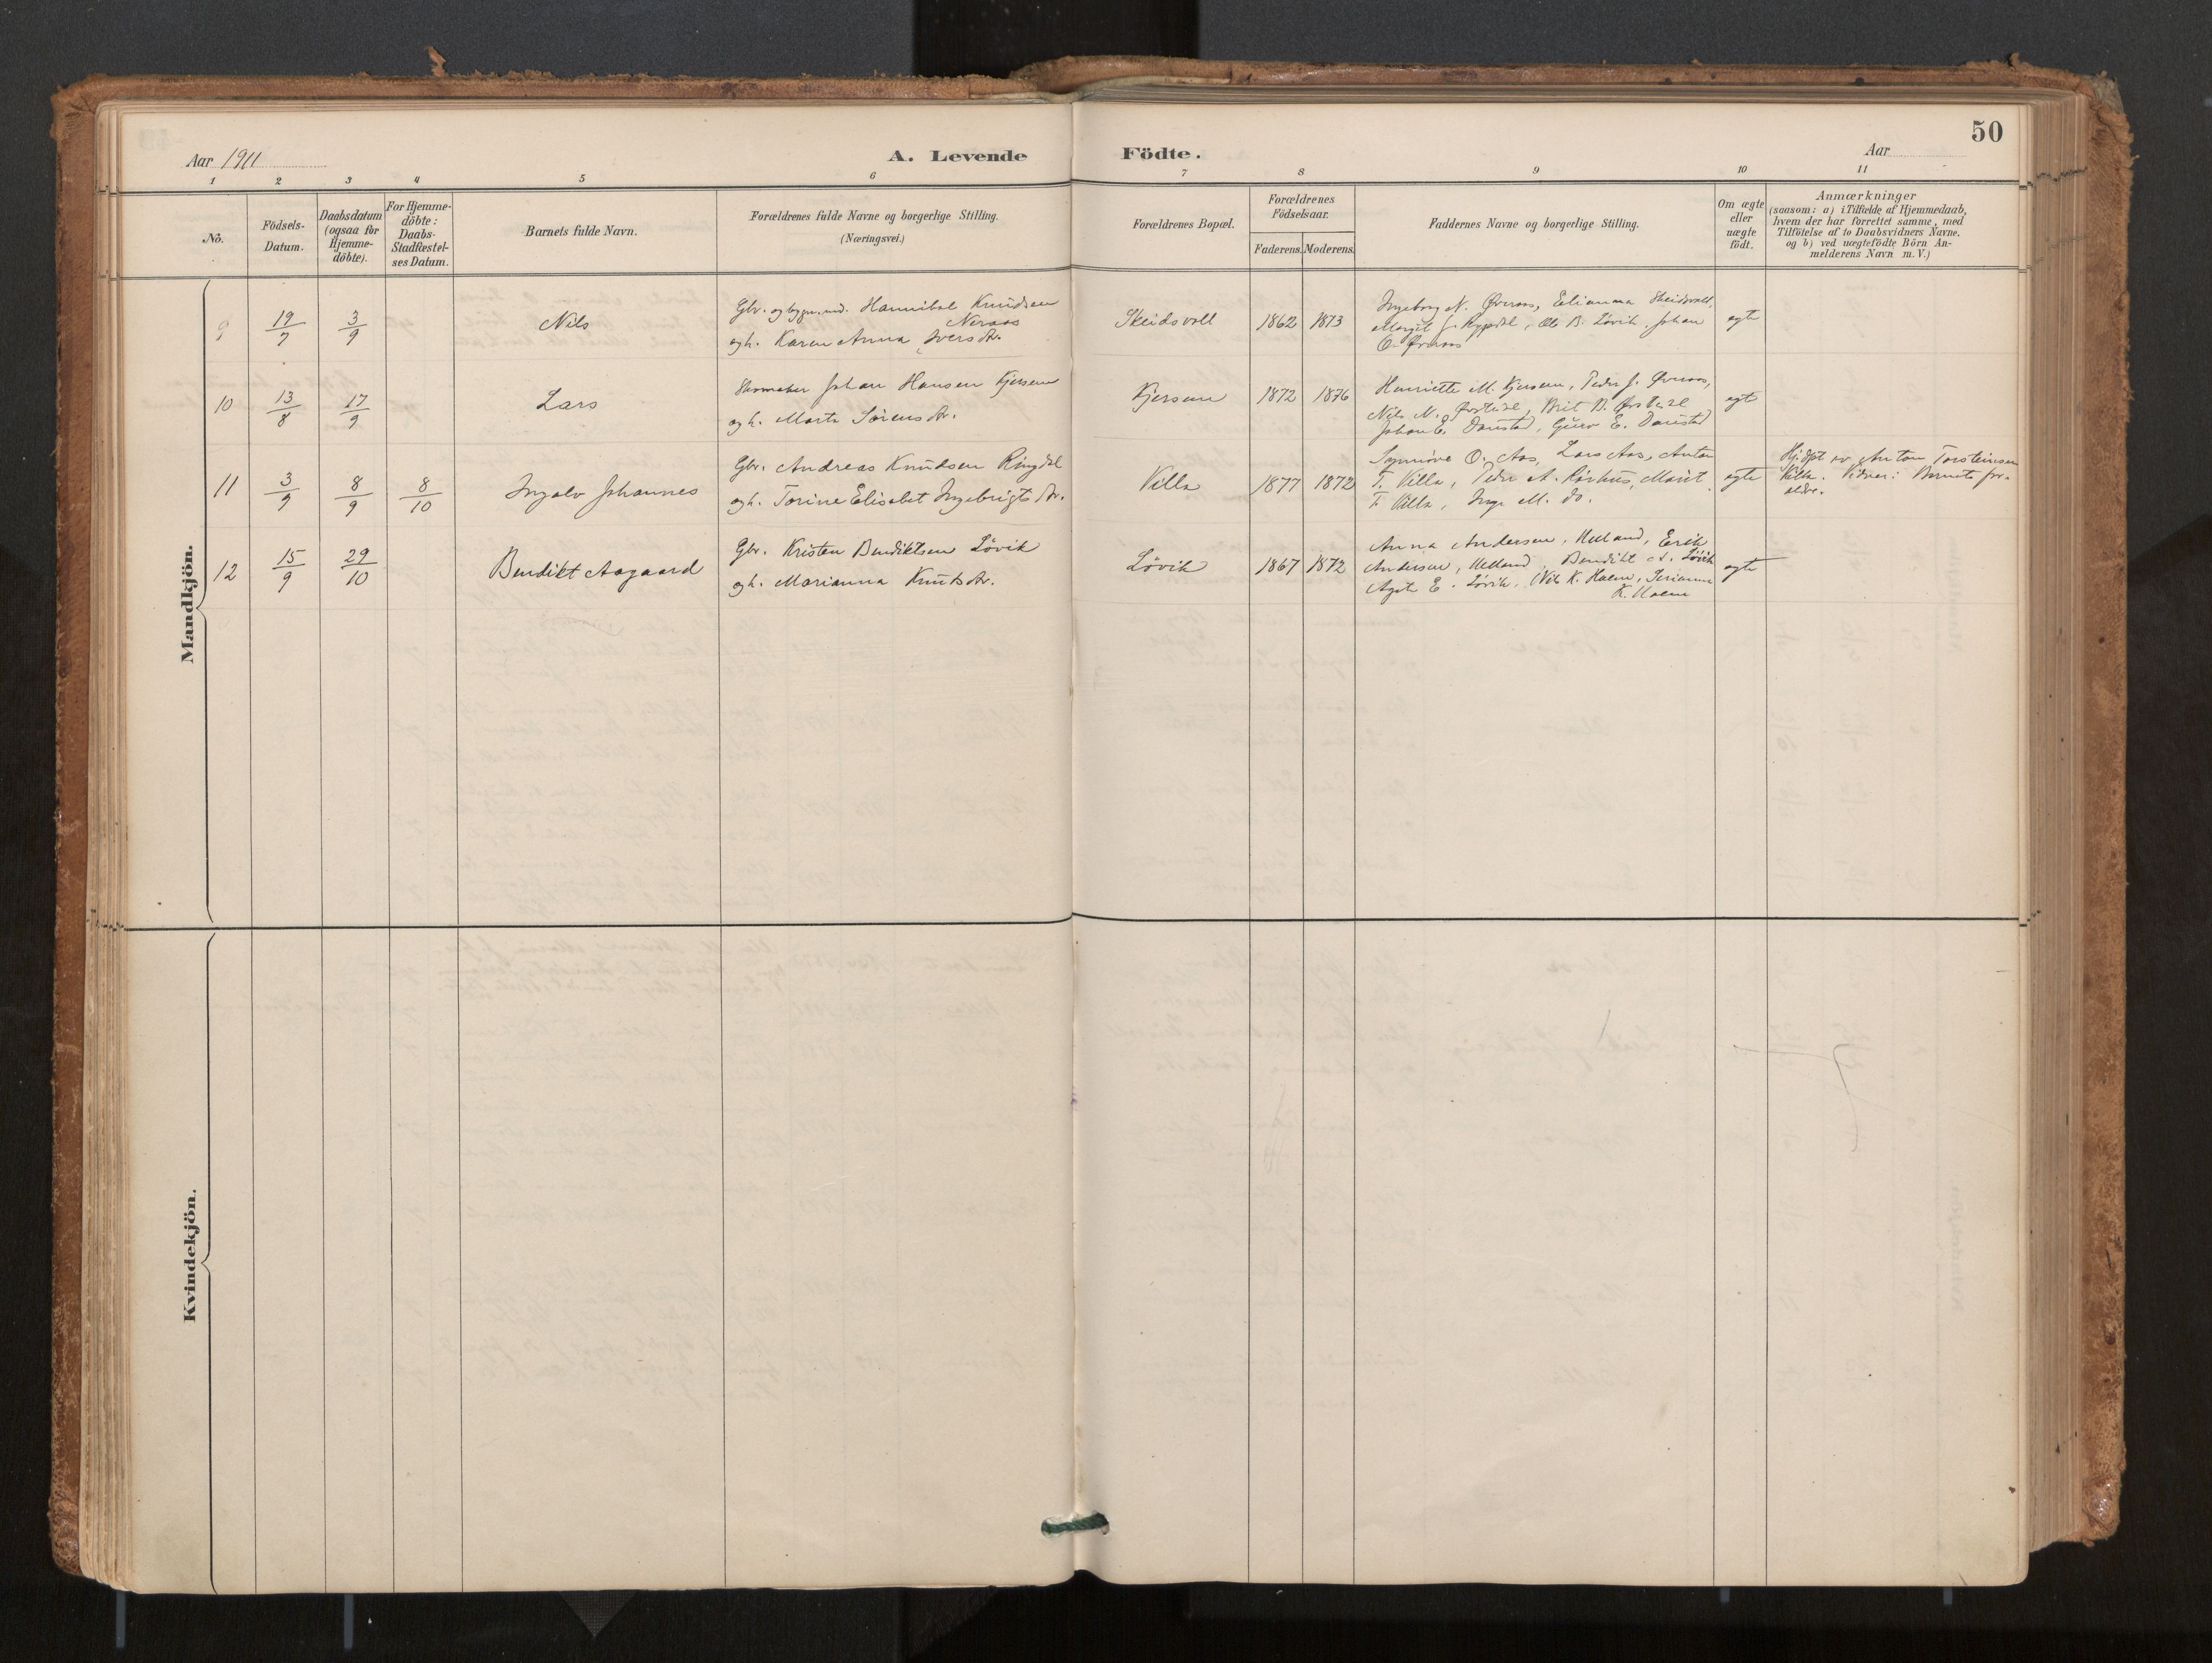 50
Aar 1911
A. Levende Födte.
Aar
1 2 3 4 5 6 7 8 9 10 11
No.
Födsels-Datum.
Daabsdatum (ogsaa for Hjemme-döbte).
For Hjemme-döbte: Daabs-Stadfæstel-ses Datum.
Barnets fulde Navn.
Forældrenes fulde Navne og borgerlige Stilling.
(Næringsvei.)
Forældrenes Bopæl.
Forældrenes Födselsaar.
Faderens. Moderens.
Faddernes Navne og borgerlige Stilling.
Om ægte eller uægte födt.
Anmærkninger
(saasom: a) i Tilfælde af Hjemmedaab,
hvem der har forrettet samme, med
Tilföielse af to Daabsvidners Navne.
og b) ved uægtefödte Börn An-
melderens Navn m. V.)
Mandkjön.
9 19/7 3/9 Nils
Gbr. og bygn.md. Hannibal Knudsen
Neraas
og h. Karen Anna Iversdtr.
Skeidsvoll 1862 1873
Ingeborg N. Øveraas, Elianna Skeidsvoll,
Margit J. Rypdal, Ole B. Lövik, Johan
O. Øveraas
egte
10 13/8 17/9 Lars
Skomaker Johan Hansen Kjersem
og h. Marta Sörensdtr.
Kjersem 1872 1876
Henriette M. Kjersem, Peder J. Øveraas,
Nils M. Brit B.
Johan E. Daustad, Guro E. Daustad
egte
11 3/9 8/9 8/10 Ingolv Johannes
Gbr. Andreas Knudsen Ringdal
og h. Torine Elisabet Ingebrigtsdtr.
Villa 1877 1872
Synnöve O. Aas, Lars Aas, Anton
T. Villa, Peder A. Rörhus, Marit
T. Villa, Inga M. do.
egte
Hj.döpt av Anton Torsteinsen
Villa. Vidner: Barnets for-
ældre.
12 15/9 29/10 Bendikt Aagaard
Gbr. Kristen Bendiktsen Lövik
og h. Marianna Knutsdtr.
Lövik 1867 1872
Anna Andersen, Helland, Erik
Andersen, Helland, Bendikt A. Lövik
Agate E. Lövik, Nils K. Holm,
K. Holm
egte
Kvindekjön.